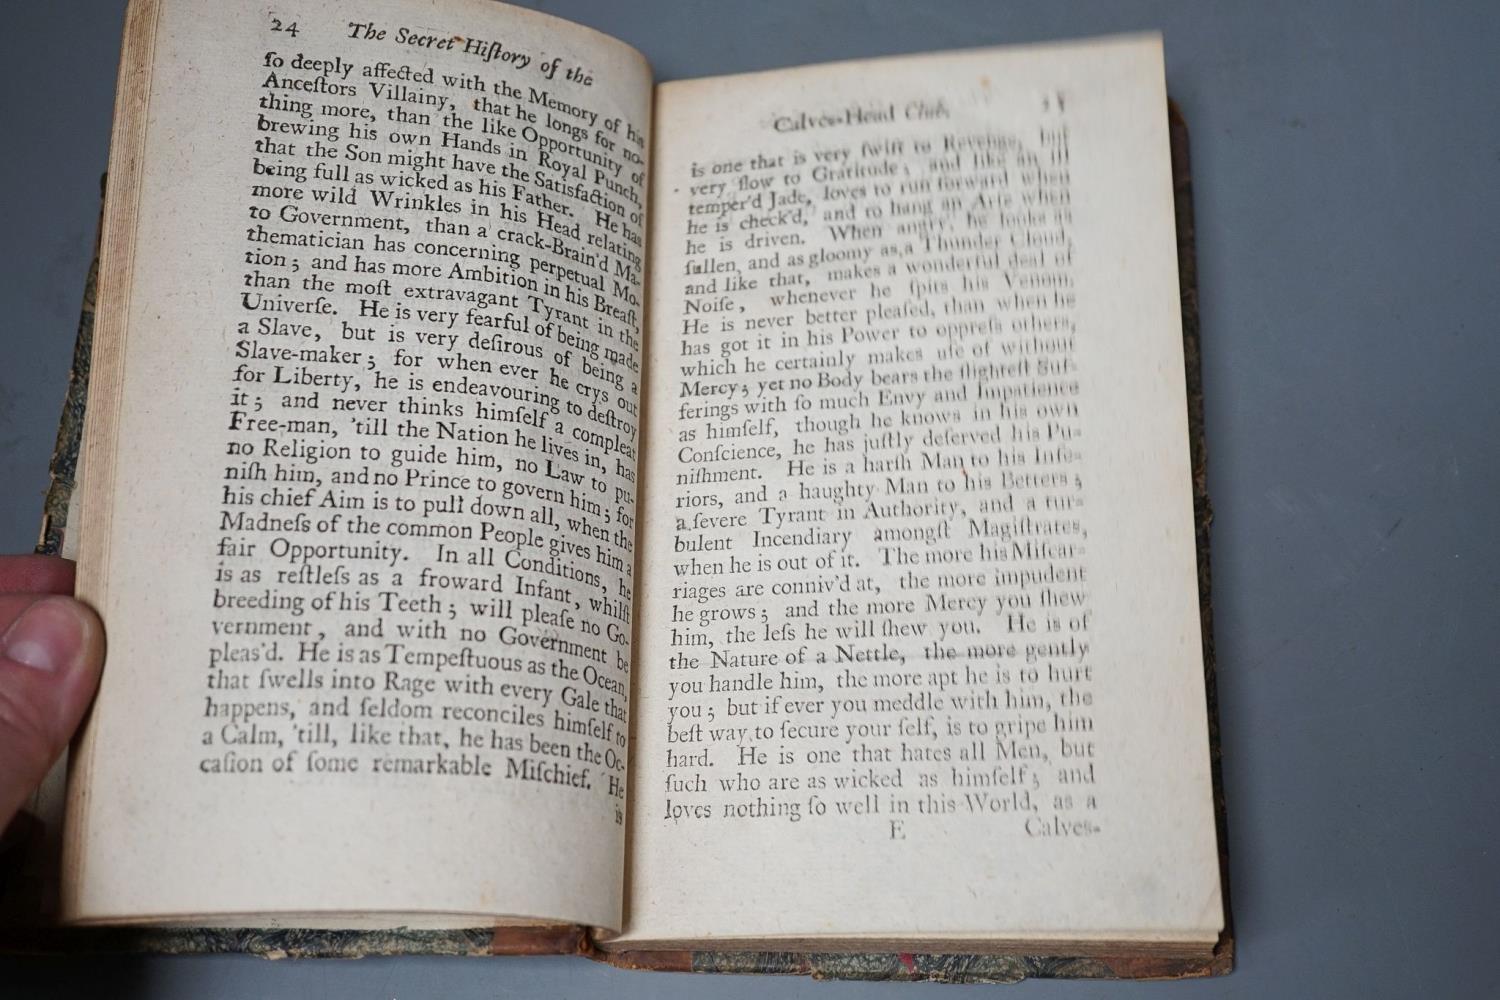 24 The Secret Hiſtory of the
ſo deeply affected with the Memory of his
Anceſtors Villainy, that he longs for no-
thing more, than the like Opportunity of
brewing his own Hands in Royal Punch,
that the Son might have the Satisfaction of
being full as wicked as his Father. He has
more wild Wrinkles in his Head relating
to Government, than a crack-Brain'd Ma-
thematician has concerning perpetual Mo-
tion; and has more Ambition in his Breaſt,
than the moſt extravagant Tyrant in the
Univerſe. He is very fearful of being made
a Slave, but is very deſirous of being a
Slave-maker; for when ever he crys out
for Liberty, he is endeavouring to deſtroy
it; and never thinks himſelf a compleat
Free-man, 'till the Nation he lives in, has
no Religion to guide him, no Law to pu-
niſh him, and no Prince to govern him; for
his chief Aim is to pull down all, when the
Madneſs of the common People gives him a
fair Opportunity. In all Conditions, he
is as reſtleſs as a froward Infant, whilſt
breeding of his Teeth; will pleaſe no Go-
vernment, and with no Government be
pleas'd. He is as Tempeſtuous as the Ocean,
that ſwells into Rage with every Gale that
happens, and ſeldom reconciles himſelf to
a Calm, 'till, like that, he has been the Oc-
caſion of ſome remarkable Miſchief. He
is
Calves-Head Club.
is one that is very ſwift to Revenge, but
very ſlow to Gratitude; and like an ill
temper'd Jade, loves to run forward when
he is check'd, and to hang an Arſe when
he is driven. When angry, he looks as
ſullen, and as gloomy as a Thunder Cloud,
and like that, makes a wonderful deal of
Noiſe, whenever he ſpits his Venom.
He is never better pleaſed, than when he
has got it in his Power to oppreſs others,
which he certainly makes uſe of without
Mercy; yet no Body bears the ſlighteſt Suf-
ferings with ſo much Envy and Impatience
as himſelf, though he knows in his own
Conſcience, he has juſtly deſerved his Pu-
niſhment. He is a harſh Man to his Infe-
riors, and a haughty Man to his Betters;
a ſevere Tyrant in Authority, and a tur-
bulent Incendiary amongſt Magiſtrates,
when he is out of it. The more his Miſcar-
riages are conniv'd at, the more impudent
he grows; and the more Mercy you ſhew
him, the leſs he will ſhew you. He is of
the Nature of a Nettle, the more gently
you handle him, the more apt he is to hurt
you; but if ever you meddle with him, the
beſt way to ſecure your ſelf, is to gripe him
hard. He is one that hates all Men, but
ſuch who are as wicked as himſelf; and
loves nothing ſo well in this World, as a
E Calves-